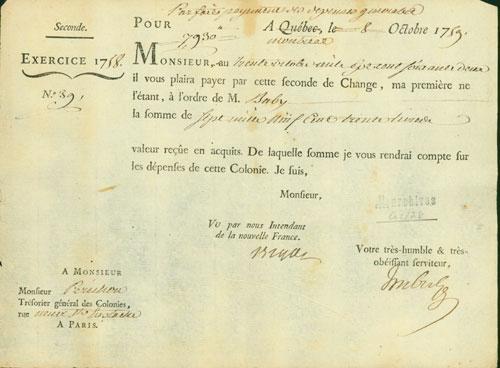 Parfait payement des depenses generalles
Seconde.
POUR 7930
A Québec, le 8 Octobre 1759.
montreal
EXERCICE 1758.
MONSIEUR, au
il vous plaira payer par cette seconde de Change, ma première ne
N.º 89,
l'étant, à l'ordre de M. Baby
la somme de Sept mille Neuf Cent trente livres
valeur reçûe en acquits. De laquelle somme je vous rendrai compte sur
les dépenses de cette Colonie. Je suis,
Monsieur,
VU par nous Intendant
de la nouvelle France.
Bigot
Votre très-humble & très-
obéissant serviteur,
Imbert
A MONSIEUR
Monsieur Perichon
Trésorier général des Colonies,
rue neuve St Eustache
A PARIS.